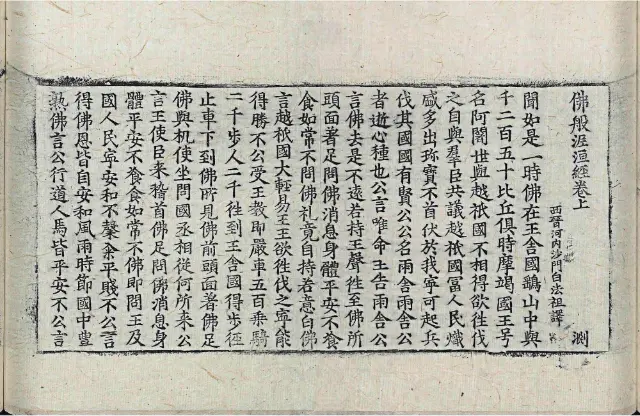 佛般泥洹經卷上 測
西晉河內沙門白法祖譯
聞如是一時佛在王舍國鷂山中與
千二百五十比丘俱時摩竭國王号
名阿闍世與越祇國不相得欲往伐
之自與羣臣共議越祇國富人民熾
盛多出珎寶不首伏於我寧可起兵
伐其國國有賢公公名雨舍雨舍公
者逝心種也公言唯命王告雨舍公
言佛去是不遠若持王聲往至佛所
頭面著足問佛消息身體平安不飡
食如常不問佛礼竟自持若意白佛
言越祇國大輕易王王欲往伐之寧能
得勝不公受王教即嚴車五百乘騎
二千步人二千往到王舍國得步徑
止車下到佛所見佛前頭面著佛足
佛與机使坐問國丞相從何所來公
言王使臣來稽首佛足問佛消息身
體平安不飡食如常不佛即問王及
國人民寧安和不糓平賤不公言
得佛恩皆自安和風雨時節國中豊
熟佛言公行道人馬皆平安不公言